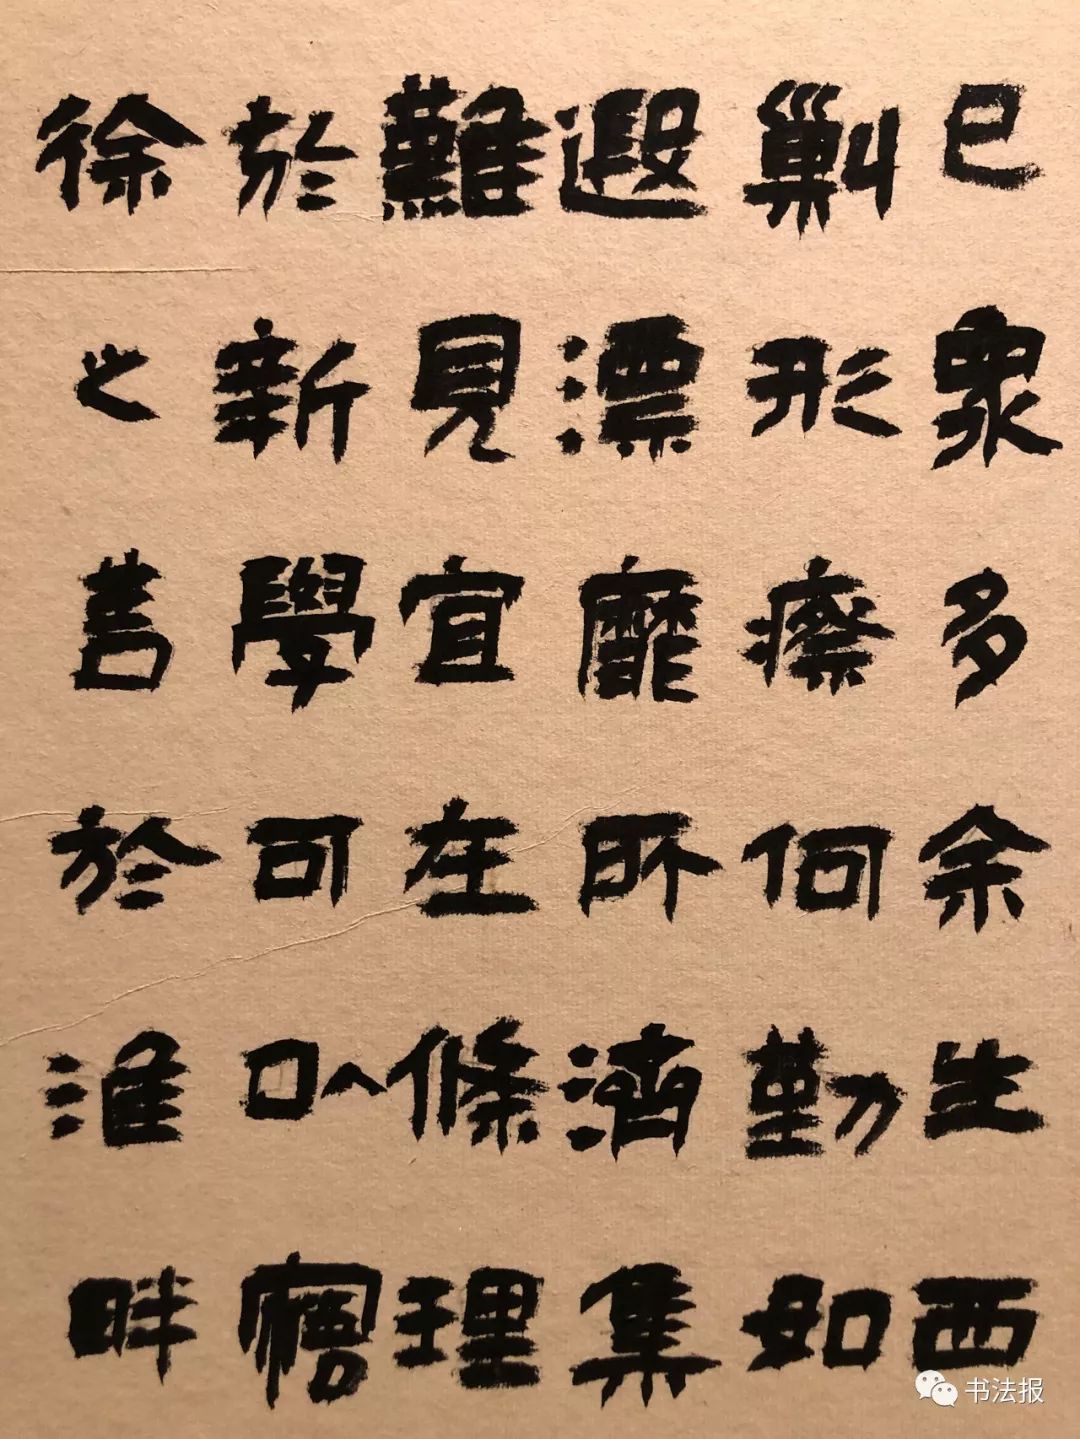 已眾多余生西
剿形瘵何勤如
遐漂靡所濟集
難見宜在條理
於新學可以寤
徐之善於淮畔
书法报